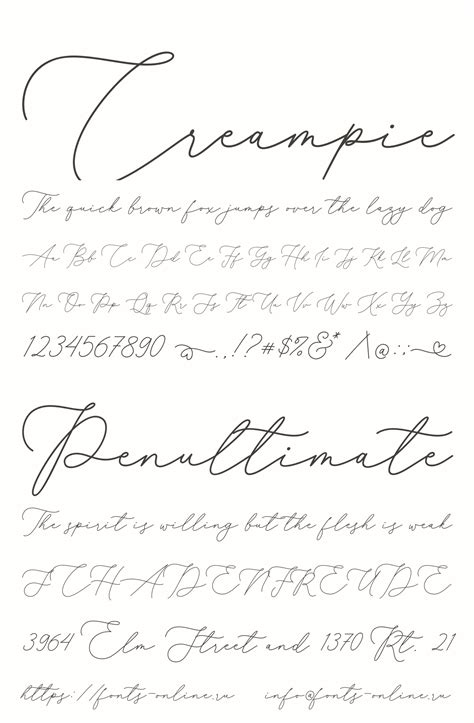 Creampie
The quick brown fox jumps over the lazy dog
Aa Bb Cc Dd Ee Ff Gg Hh Ii Jj Kk Ll Mm
Nn Oo Pp Qq Rr Ss Tt Uu Vv Ww Xx Yy Zz
1234567890 @.,!?#$%&* /\@:;~♡
Penultimate
The spirit is willing but the flesh is weak
SCHADENFREUDE
3964 Elm Street and 1370 Rt. 21
https://fonts-online.ru info@fonts-online.ru